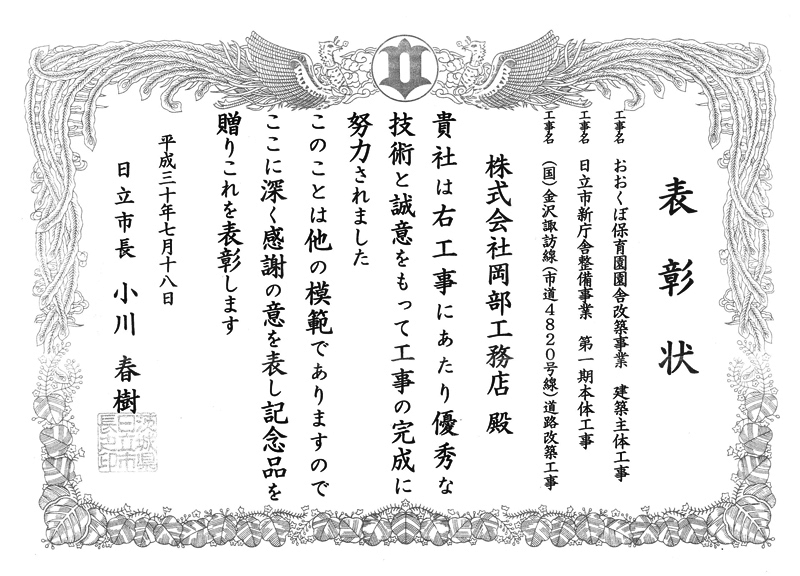 表彰状
工事名 おおくぼ保育園園舎改築事業 建築主体工事
工事名 日立市新庁舎整備事業 第一期本体工事
工事名 (国)金沢諏訪線(市道4820号線)道路改築工事
株式会社岡部工務店 殿
貴社は右工事にあたり優秀な
技術と誠意をもって工事の完成に
努力されました
このことは他の模範でありますので
ここに深く感謝の意を表し記念品を
贈りこれを表彰します
平成三十年七月十八日
日立市長 小川春樹
茨城県
日立市
長之印